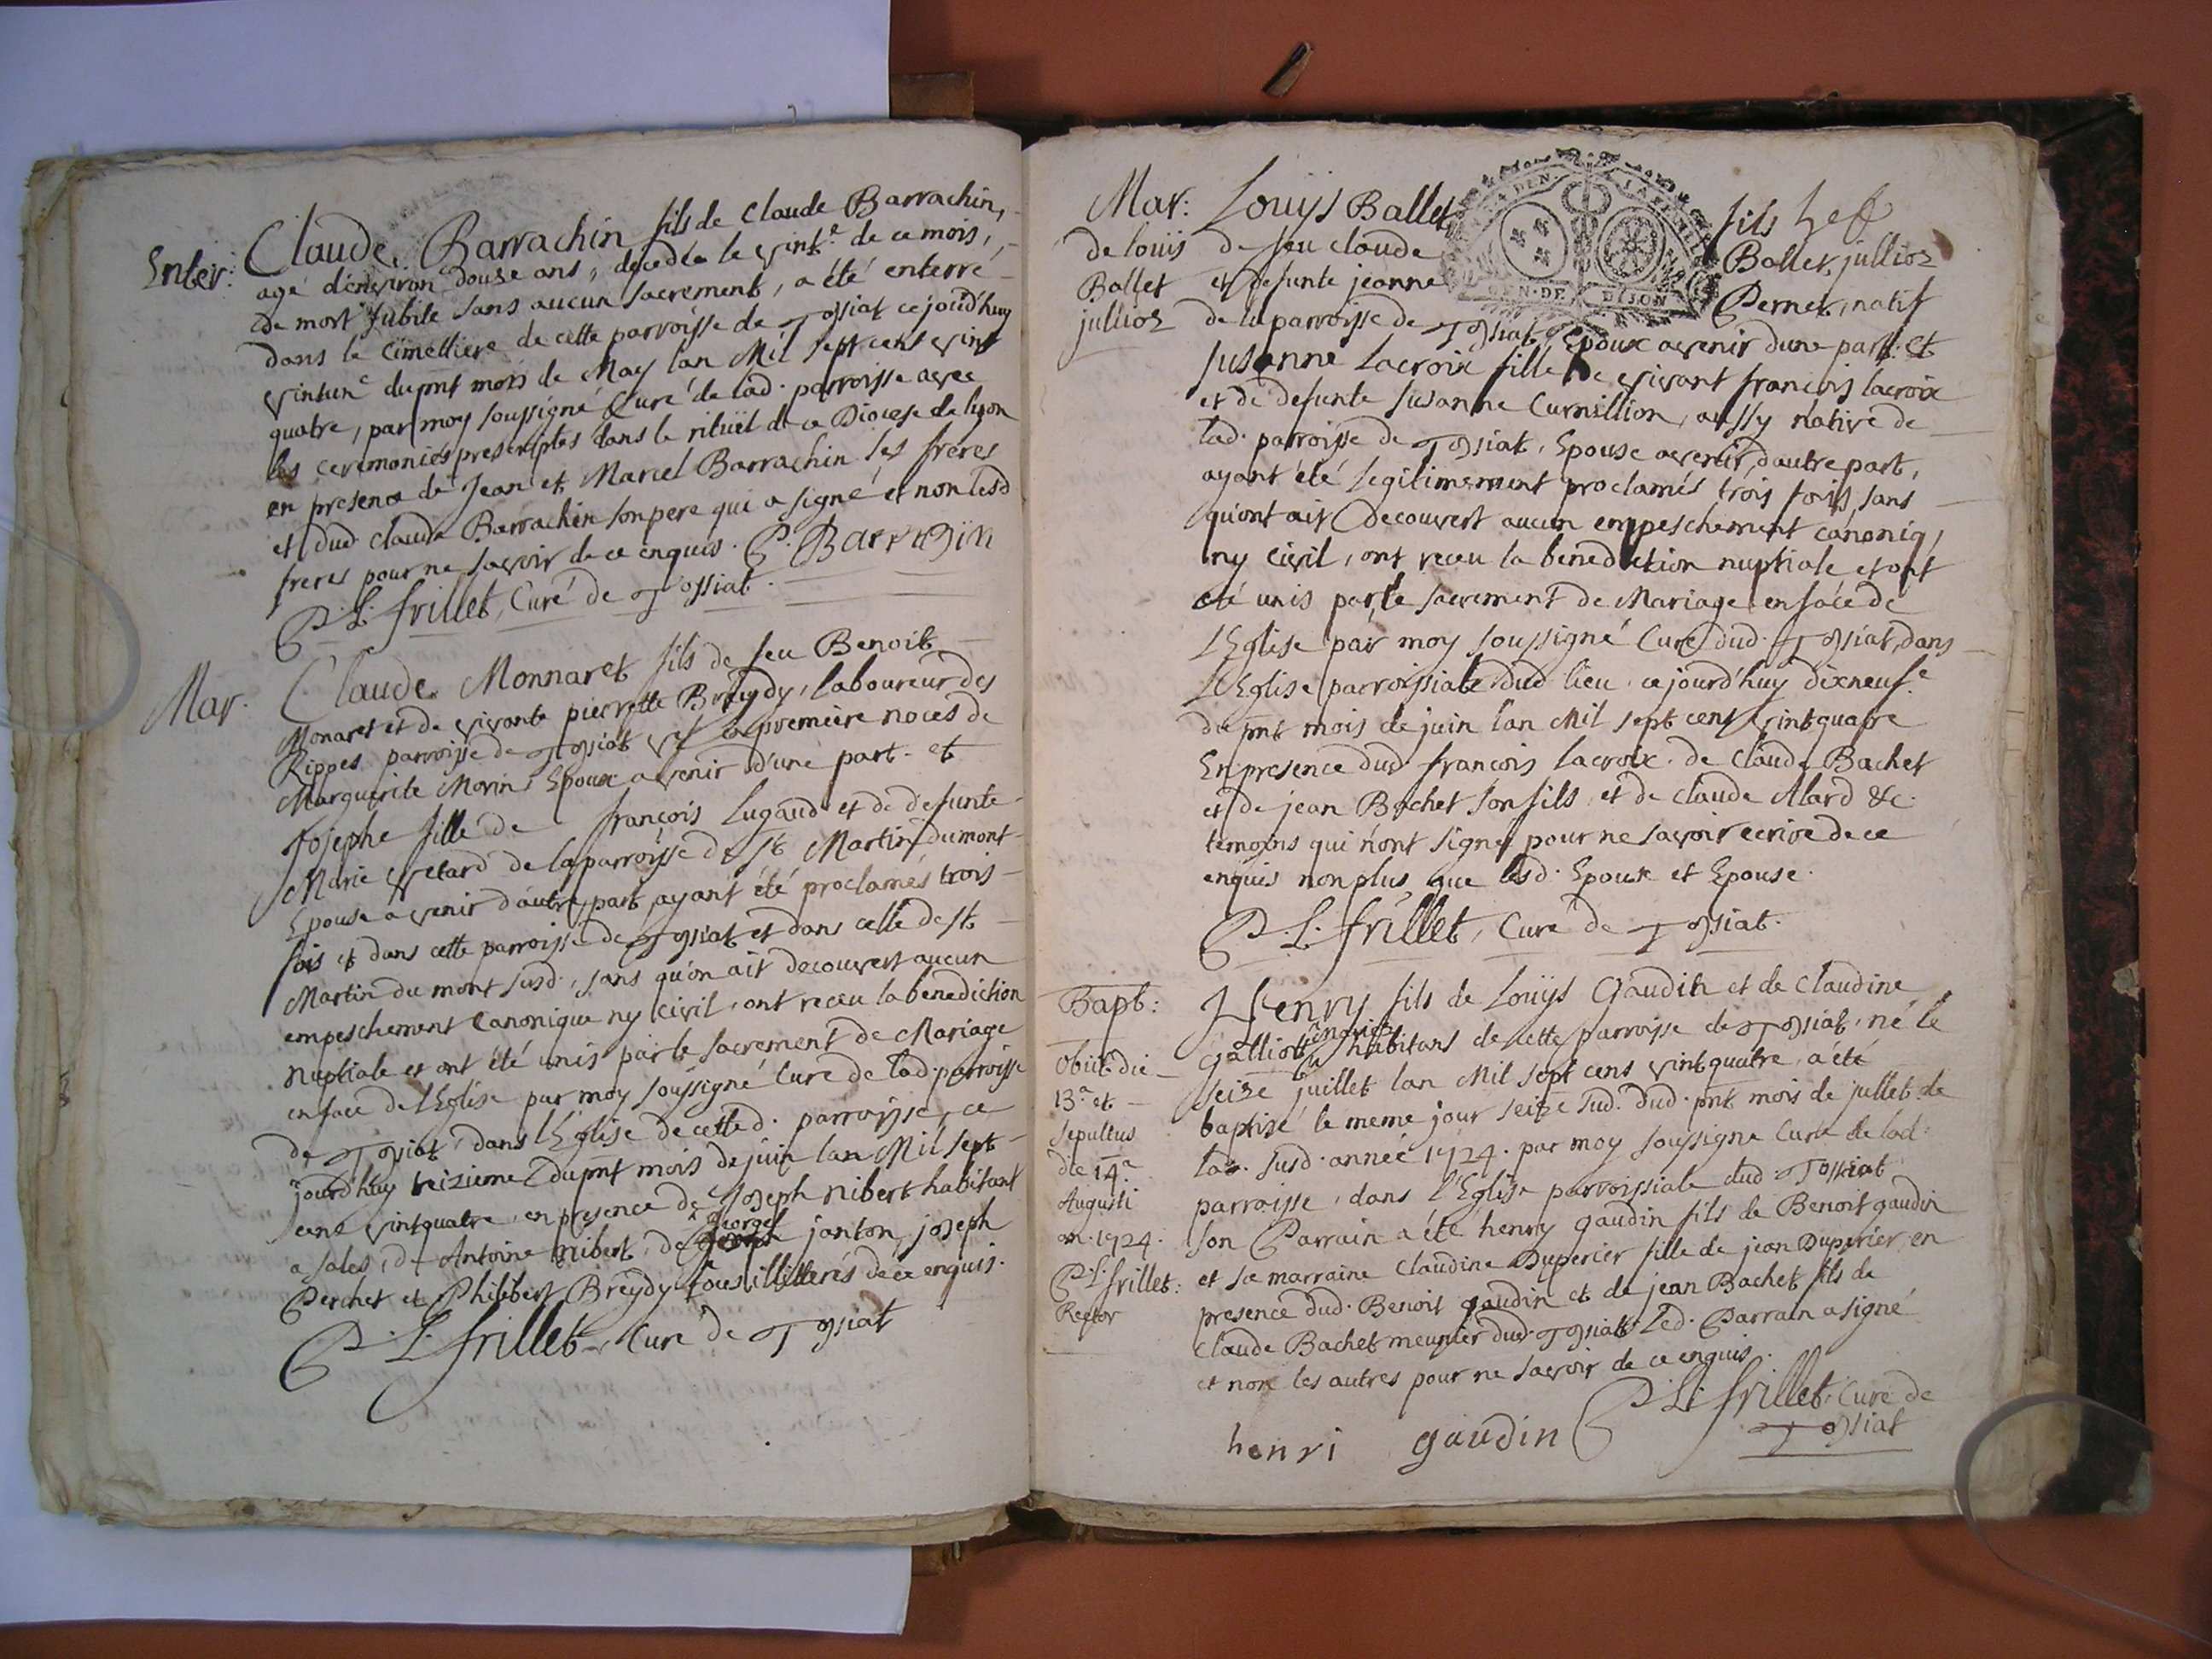 Enter:
Claude Barrachin fils de Claude Barrachin,
agé d'environ douse ans, decedée le vint.e de ce mois,
de mort subite sans aucun sacrement, a été enterré
dans le cimettiere de cette parroisse de Tossiat ce jourd'huy
vintun.e du pnt mois de May l'an Mil sept cent vint
quatre, par moy soussigné Curé de lad. parroisse avec
les ceremonies prescriptes dans le rituel de ce Diocese de lyon
en presence de Jean et Marcel Barrachin ses freres
et dud Claude Barrachin son pere qui a signé et non lesd
freres pour ne savoir de ce enquis. C. Barrachin
P. L. frillet, Curé de Tossiat.
Mar.
Claude Monnaret fils de feu Benoit
Monaret et de vivante pierrette Breydy, laboureur des
Rippes parroisse de Tossiat premiere noces de
Marguerite Morin, Epoux avenir d'une part. et
Josephe fille de françois Lugand et de defunte
Marie Vetard de la parroisse de St Martin du mont
Epouse avenir d'autre part, ayant été proclamés trois
fois et dans cette parroisse de Tossiat et dans celle de St
Martin du mont susd., sans qu'on ait decouvert aucun
empeschement Canonique ny Civil, ont receu la benediction
Nuptiale et ont été unis par le sacrement de Mariage
en face de l'Eglise par moy soussigné Curé de lad. parroisse
de Tossiat, dans l'Eglise de cetted. parroisse, ce
jourd'huy treizieme du pnt mois de juin l'an Mil sept
cent vintquatre, en presence de Joseph Nibert habitant
a Sales, d'Antoine Nibert, de George janton, joseph
Perchet et Philibert Breydy tous illitterés de ce enquis.
P. L. frillet, Curé de Tossiat
Mar:
de louis
Ballet
jullioz
Louys Ballet fils
de feu claude Ballet, jullioz
et defunte jeanne Pernet, natif
de la parroisse de Tossiat, Epoux avenir d'une part. Et
Susanne Lacroix fille de vivant francois lacroix
et de defunte Susanne Curnillion, aussy native de
lad. parroisse de Tossiat, Epouse avenir, d'autre part,
ayant été legitimement proclamés trois fois, sans
qu'ont ait decouvert aucun empeschement canoniq,
ny Civil, ont receu la benediction nuptiale et ont
eté unis par le sacrement de Mariage en face de
L'Eglise par moy soussigné Curé dud. Tossiat, dans
L'Eglise parroissiale dud. lieu. ce jourd'huy dixneuf.e
du pnt mois de juin l'an Mil sept cent vintquatre
En presence dud. francois lacroix. de Claude Bachet
et de jean Bachet son fils, et de claude Alard &c.
temoins qui n'ont signé pour ne savoir ecrire de ce
enquis non plus que lesd. Epoux et Epouse.
P. L. frillet, Curé de Tossiat.
Bapt:
Obiit die
13.a et
sepultus
die 14.a
Augusti
an. 1724.
P. L. frillet:
Rector
Henry fils de Louys Gaudin et de Claudine
Galliot habitans de cette parroisse de Tossiat, né le
seize juillet l'an Mil sept cens vintquatre, a été
baptisé le meme jour seize sud. dud. pnt mois de juillet de
lad. susd. année 1724. par moy soussigné Curé de lad.
parroisse, dans l'Eglise parroissiale dud. Tossiat
son Parrain a été henry gaudin fils de Benoit gaudin
et sa marraine Claudine Duperier fille de jean Duperier, en
presence dud. Benoit gaudin et de jean Bachet fils de
Claude Bachet meunier dud. Tossiat. Led. Parrain a signé
et non les autres pour ne savoir de ce enquis.
P. L. frillet. Curé de
Tossiat
henri gaudin
GEN. DE DIJON